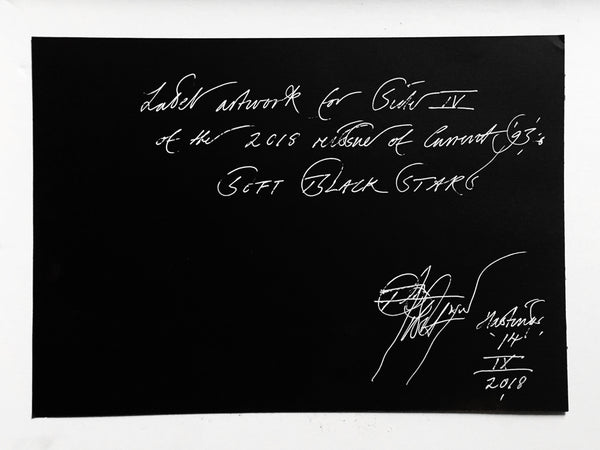 Label artwork for Side IV
of the 2018 reissue of Current '93's
SOFT BLACK STARS
Hastings
'14'
IX
2018